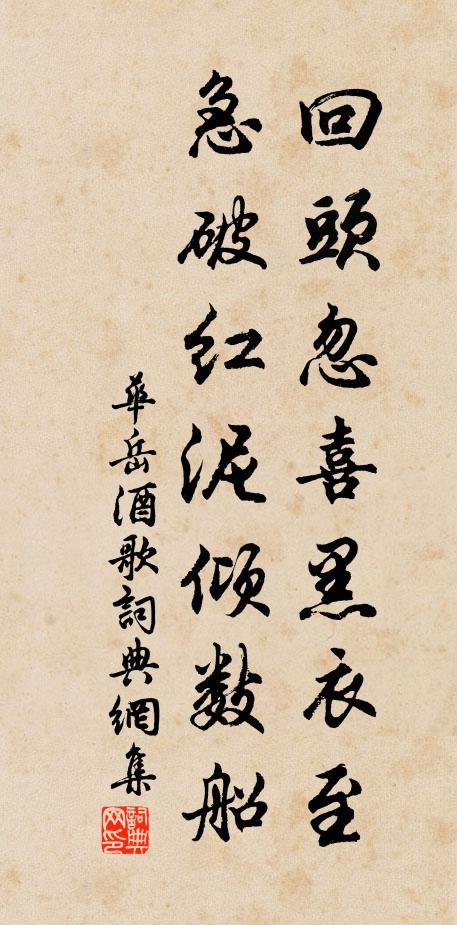 回頭忽喜黑衣至
急破紅泥傾數船
華岳酒歌詞典網集
詞典
网印